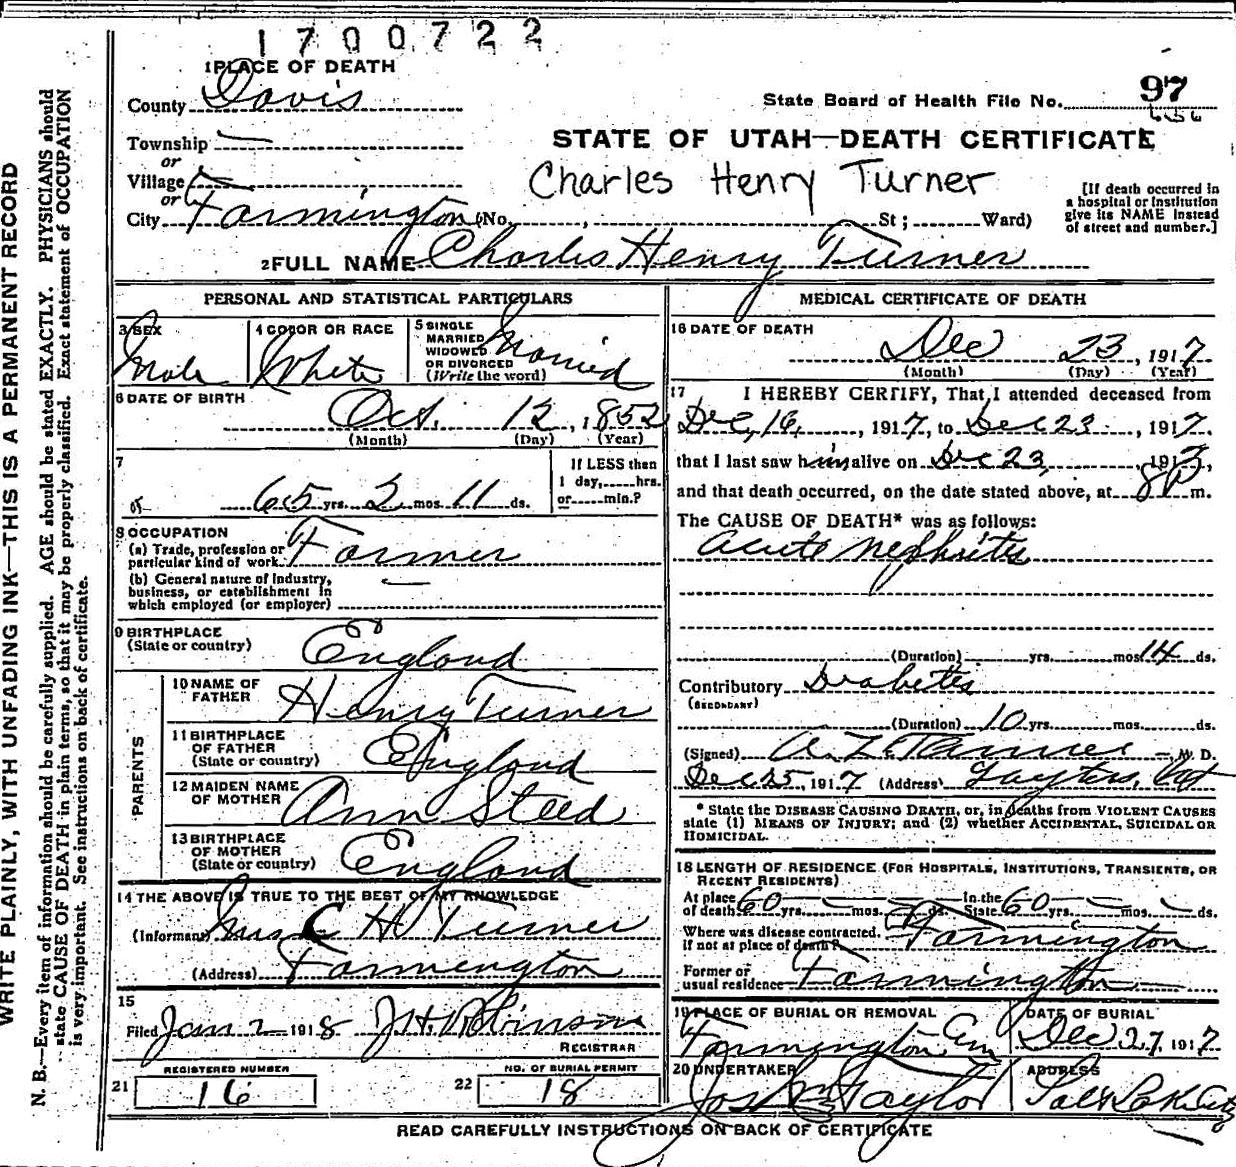 1700722
1 PLACE OF DEATH
County Davis
State Board of Health File No. 97
656
STATE OF UTAH—DEATH CERTIFICATE
Township —
or
Village
or
Charles Henry Turner
City Farmington (No. , St; Ward)
[If death occurred in a hospital or institution give its NAME instead of street and number.]
2 FULL NAME Charles Henry Turner
PERSONAL AND STATISTICAL PARTICULARS
3 SEX Male
4 COLOR OR RACE White
5 SINGLE MARRIED WIDOWED OR DIVORCED (Write the word) Married
6 DATE OF BIRTH Oct. 12, 1852
(Month) (Day) (Year)
7
65 yrs. 2 mos. 11 ds.
If LESS than 1 day, hrs. or min.?
8 OCCUPATION
(a) Trade, profession or particular kind of work Farmer
(b) General nature of industry, business, or establishment in which employed (or employer) —
9 BIRTHPLACE (State or country) England
PARENTS
10 NAME OF FATHER Henry Turner
11 BIRTHPLACE OF FATHER (State or country) England
12 MAIDEN NAME OF MOTHER Ann Steed
13 BIRTHPLACE OF MOTHER (State or country) England
14 THE ABOVE IS TRUE TO THE BEST OF MY KNOWLEDGE
(Informant) Mrs C H Turner
(Address) Farmington
15
Filed Jan 2 1918 J.H. Robinson
REGISTRAR
21 REGISTERED NUMBER 16
22 NO. OF BURIAL PERMIT 18
MEDICAL CERTIFICATE OF DEATH
16 DATE OF DEATH
Dec 23, 1917
(Month) (Day) (Year)
17 I HEREBY CERTIFY, That I attended deceased from
Dec, 16, 1917, to Dec 23, 1917.
that I last saw him alive on Dec 23, 1917,
and that death occurred, on the date stated above, at 8 P m.
The CAUSE OF DEATH* was as follows:
Acute Nephritis
(Duration) yrs. mos. 14 ds.
Contributory Diabetes
(SECONDARY)
(Duration) 10 yrs. mos. ds.
(Signed) A. Z. Tanner — M. D.
Dec 25, 1917 (Address) Layton, Ut
* State the DISEASE CAUSING DEATH, or, in deaths from VIOLENT CAUSES
state (1) MEANS OF INJURY; and (2) whether ACCIDENTAL, SUICIDAL OR
HOMICIDAL.
18 LENGTH OF RESIDENCE (FOR HOSPITALS, INSTITUTIONS, TRANSIENTS, OR
RECENT RESIDENTS)
At place of death 60 yrs. — mos. — ds. In the State 60 — mos. — ds.
Where was disease contracted, if not at place of death? Farmington
Former or usual residence Farmington
19 PLACE OF BURIAL OR REMOVAL Farmington Cem
DATE OF BURIAL Dec 27, 1917
20 UNDERTAKER Taylor
ADDRESS Salt Lake City
READ CAREFULLY INSTRUCTIONS ON BACK OF CERTIFICATE
WRITE PLAINLY, WITH UNFADING INK—THIS IS A PERMANENT RECORD
N. B.—Every item of information should be carefully supplied. AGE should be stated EXACTLY. PHYSICIANS should
state CAUSE OF DEATH in plain terms, so that it may be properly classified. Exact statement of OCCUPATION
is very important. See instructions on back of certificate.